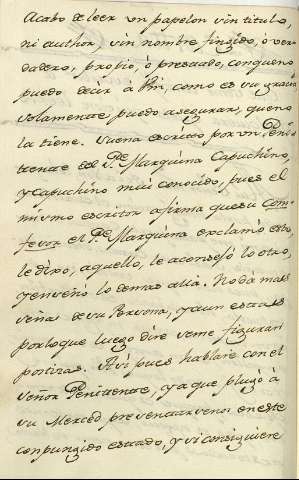 Acabo de leer un papelon sin titulo,
ni author, sin nombre fingido, o ver
dadero, propio, ò prestado, conque no
puedo decir à Vm, como es su gracia
solamente, puedo asegurar, que no
la tiene. Suena escrito por un Peni
tente del P.e Marquina Capuchino,
y Capuchino mui conocido, pues el
mismo escritor afirma que su Con
fesor el P.e Marquina exclamò esto,
le dixo, aquello, le aconsejò lo otro,
y enseñò lo demas allà. No dà mas
señas de su Persona, y aun estas
por lo que luego dire se me figuran
postizas. Asi pues hablarè con el
señor Penitente, ya que plugò à
su Merced presentarsenos en este
conpungido estado, y si consiguiere